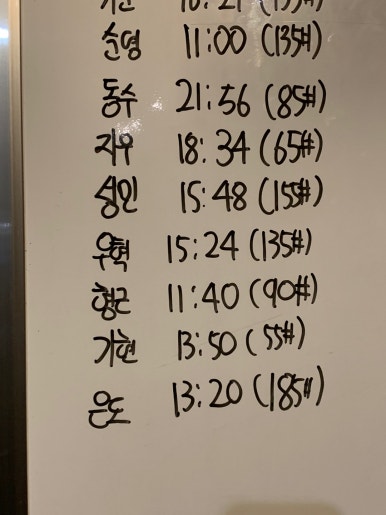 순영 11:00 (135#)
동수 21:56 (85#)
지우 18:34 (65#)
성민 15:48 (155#)
우혁 15:24 (135#)
형근 11:40 (90#)
가현 13:50 (55#)
은도 13:20 (185#)